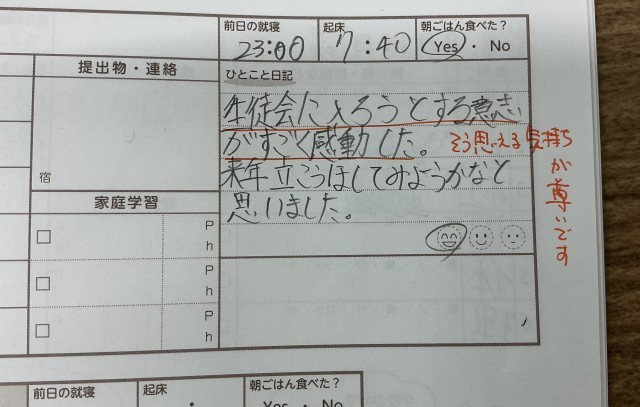 前日の就寝 起床 朝ごはん食べた？
23:00 7:40 Yes・No
提出物・連絡
宿
家庭学習
P
h
P
h
P
h
ひとこと日記
生徒会に入ろうとする意志
がすごく感動した。
来年立こうほしてみようかなと
思いました。
そう思える気持ち
が尊いです
前日の就寝 起床 朝ごはん食べた？
: Yes・No